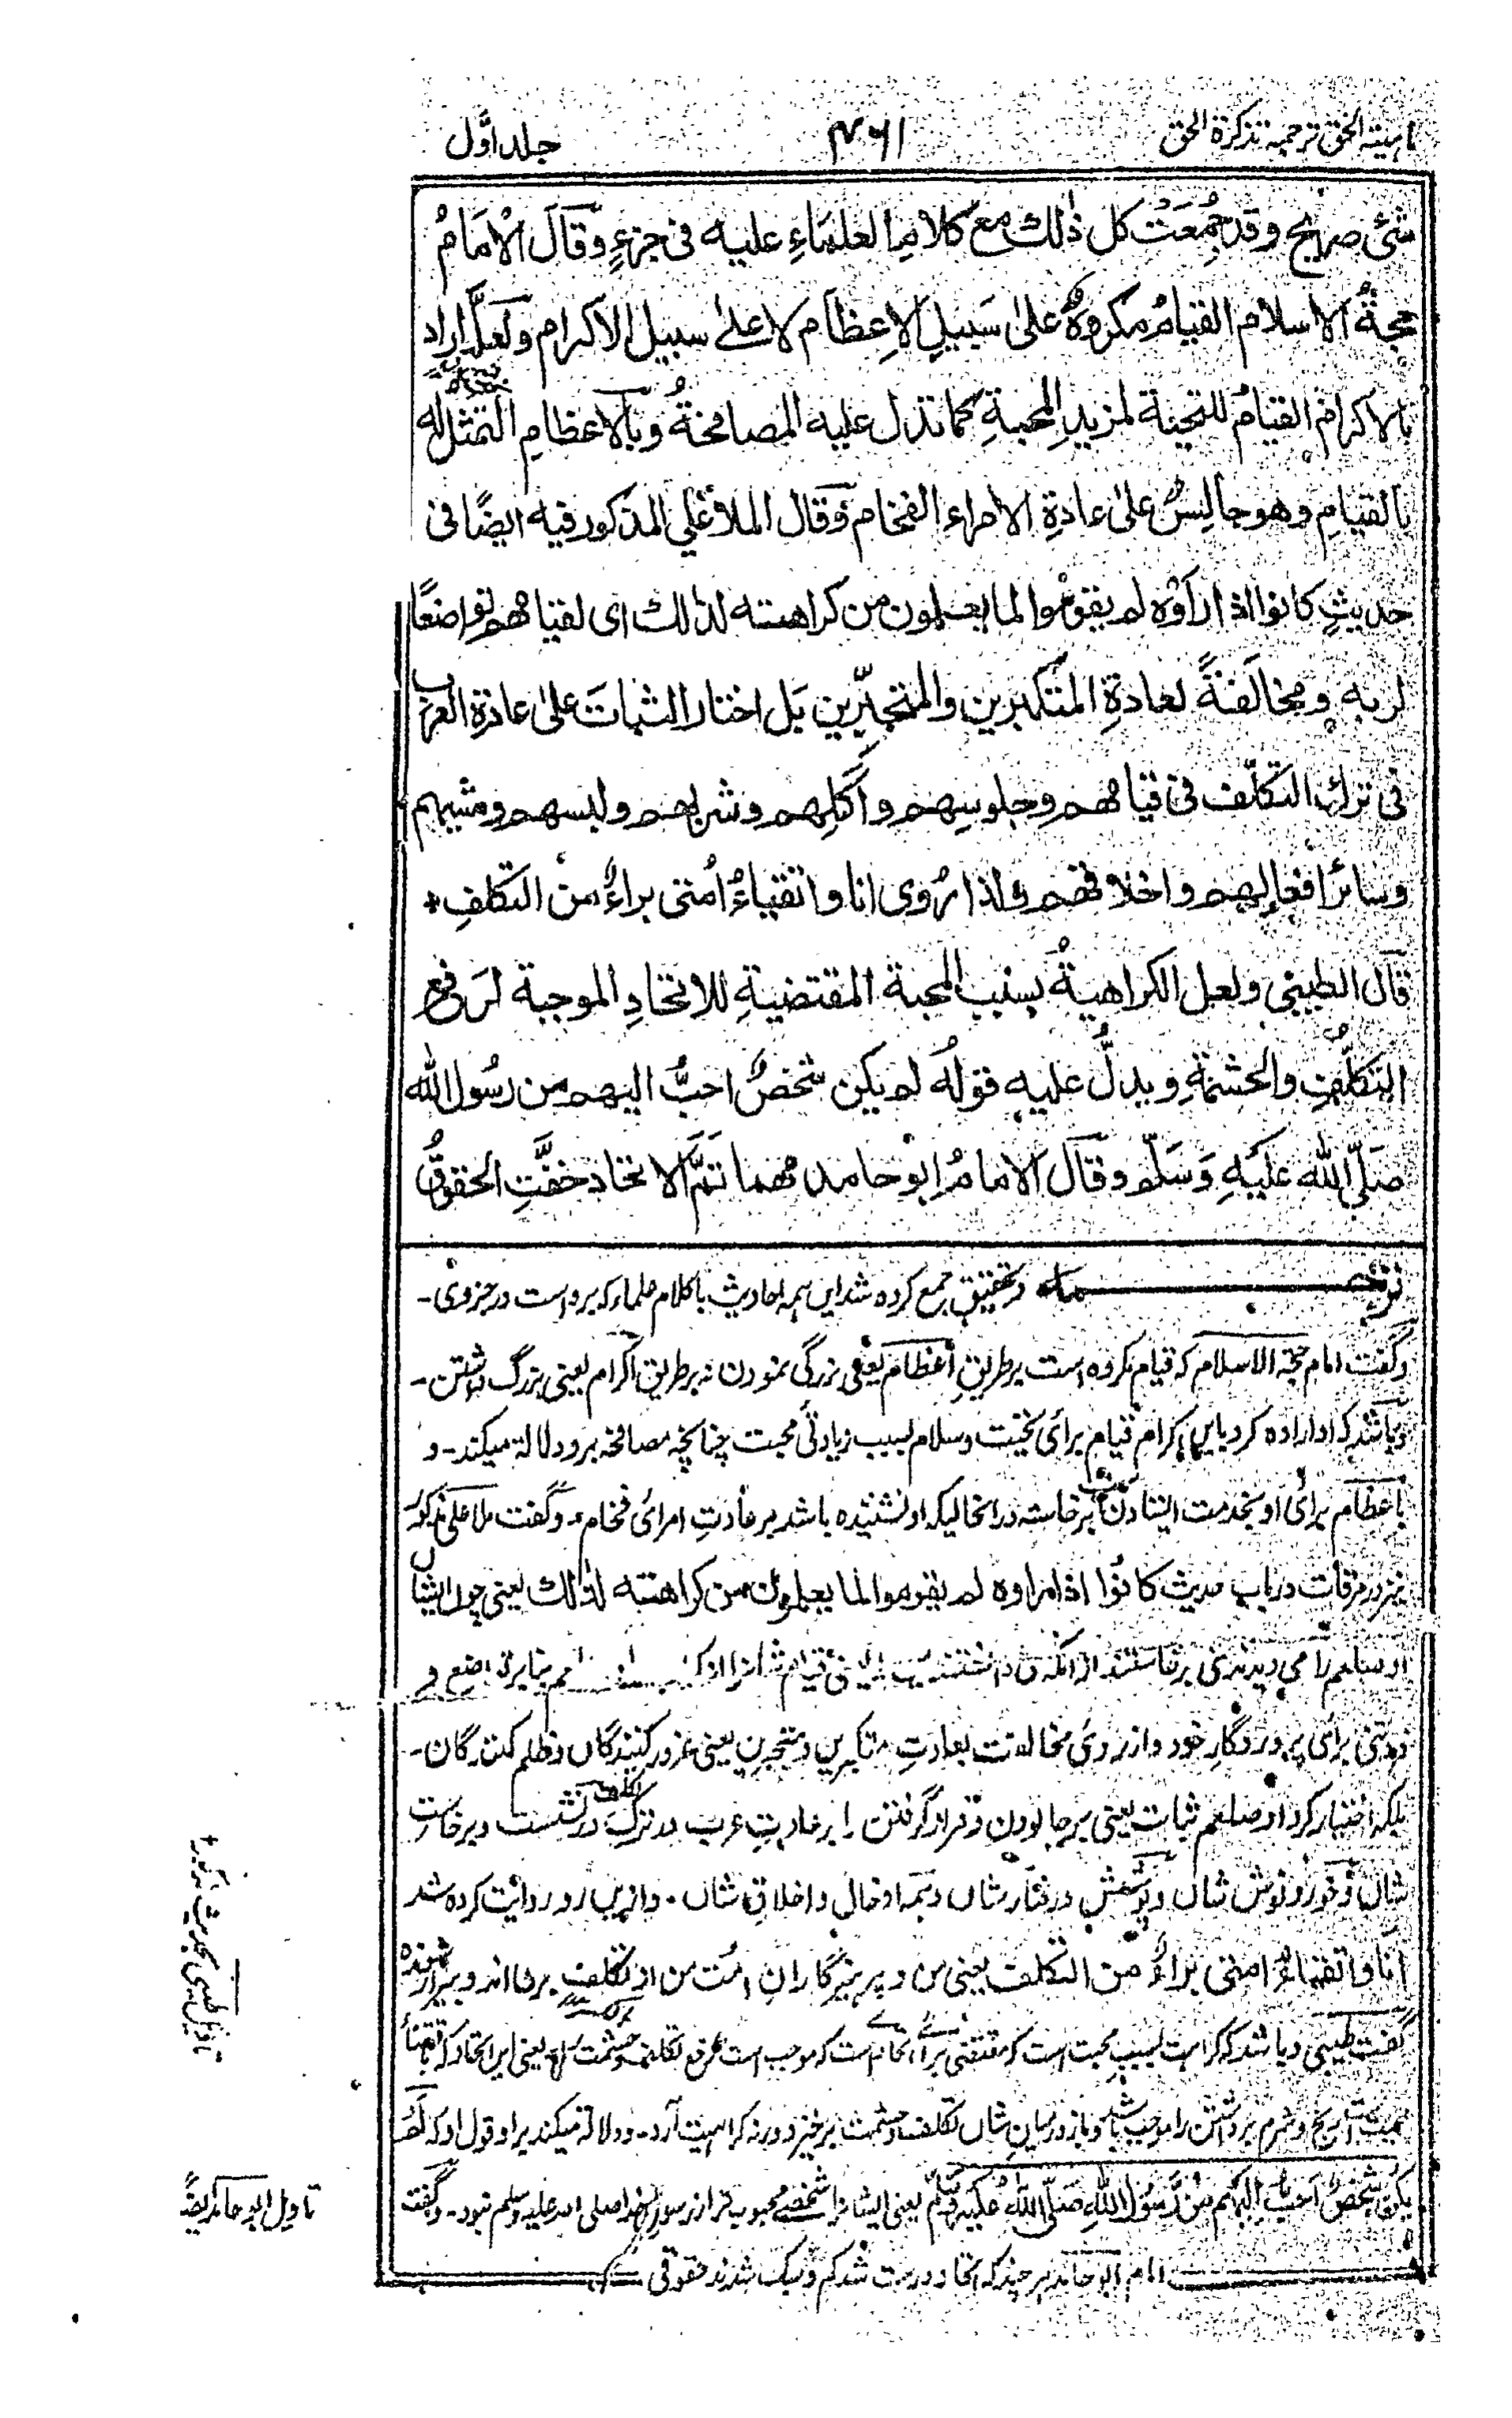 ماہیتہ الحق ترجمہ تذکرة الحق
۴۶۱
جلد اوّل
شئ صریح وقد جُمعَتْ کل ذٰلك مع کلامِ العلمَاءِ علیه فی جزءٍ وقَالَ الْامَامُ
حجةُ الاسلام القیامُ مکروهٌ علیٰ سَبیلِ الاِعظَام لا علےٰ سبیل الاکرام ولَعلّه اراد
بالاکرام القیامُ للتحیة لمزیدِ المحبةِ کما تدل علیه المصافحةُ وبالاعظامِ التمثل له
بالقیامِ وهو جالِسٌ علیٰ عادةِ الامراء الفخام وَقَال الملا عَلی المذکور فیه ایضًا فی
حدیثِ کانوا اذا رأوْه لم یقومُوا لما یعلمون من کراهته لذٰلك ای لقیامهم تواضعًا
لربه ومخالَفَةً لعادةِ المتکبرین والمتجبّرین بَل اختار الثباتَ علیٰ عادة العرب
فی ترك التکلّف فی قیامهم وجلوسِهم واَکلِهم وشربهم ولبسهم ومشیهم
وسائر افعالِهم واخلاقهم ولذا رُوی انا واتقیاءُ اُمتی براءٌ من التکلفِ+
قَال الطیبی ولعل الکراهیةُ بسبب المحبة المقتضیةِ للاتحادِ الموجبة لرَفع
التکلّفِ والحشمةِ ویدلُّ علیه قولُه لم یکن شخصٌ احبُّ الیهم من رسُول الله
صَلّی الله عَلیَهِ وَسَلّم وقَال الامامُ ابو حامد مهما تَمَّ الاتحاد خفَّتِ الحقوقُ
ترجمہ وتحقیق جمع کردہ شد این ہمہ احادیث با کلام علماء کہ برو است در جزوی۔
وگفت امام حجۃ الاسلام کہ قیام مکروہ است بر طریقِ اعظام یعنی بزرگی نمودن نہ بر طریق اکرام یعنی بزرگ داشتن۔
وباشد کہ او ارادہ کرد باین اکرام قیام برائ تحیت وسلام بسبب زیادتی محبت چنانچہ مصافحہ برو دلالۃ میکند۔ و
باعظام برائ او بخدمت ایستادن برخاستہ درانحالیکہ او نشستہ باشد بر عادتِ امرائ فخام۔ وگفت ملا علی مذکور
نیز در مرقات در باب حدیث کانُوا اذا راوه لم یقوموا لما یعلمون من کراهته لذٰلك یعنی چون ایشان
او صلعم را می دیدندی برخاستند از انکہ می دانستند
فروتنی برائ پروردگار خود واز روئ مخالفت بعادتِ متکبرین ومتجبرین یعنی غرور کنندگان وظلم کنندگان۔
بلکہ اختیار کرد او صلعم ثبات یعنی برجا بودن وقرار گرفتن را بر عادتِ عرب در ترکِ تکلف در نشست وبرخاست
شان وخور ونوش شان وپوشش ورفتار شان وہمہ افعال واخلاق شان۔ وازین رو روایت کردہ شد
انا واتقیاءُ امتی براءٌ من التکلف یعنی من وپرہیزگارانِ اُمت من از تکلف بری اند وبیزار شوندہ
گفت طیبی وباشد کہ کراہت بسببِ محبت است کہ مقتضی برائ اتحاد است کہ موجب است رفع تکلف وحشمت را یعنی این اتحاد کہ
تکلف وحشمت برخیزد ورنہ کراہیت آرد۔ ودلالۃ میکند بر او قول او کہ لَمْ
یکن شخصٌ احبَّ الیهم من رَّسُول اللهِ صَلّی اللهُ عَلَیهِ وَسَلّم یعنی ایشانرا شخصے محبوب تر از رسول خدا صلی اللہ علیہ وسلم نبود۔ وگفت
امام ابو حامد ہر چند کہ اتحاد درست شد کم وسبک شدند حقوقی
تاویل طیبی بحدیث
تاویل ابو حامد ایضًا